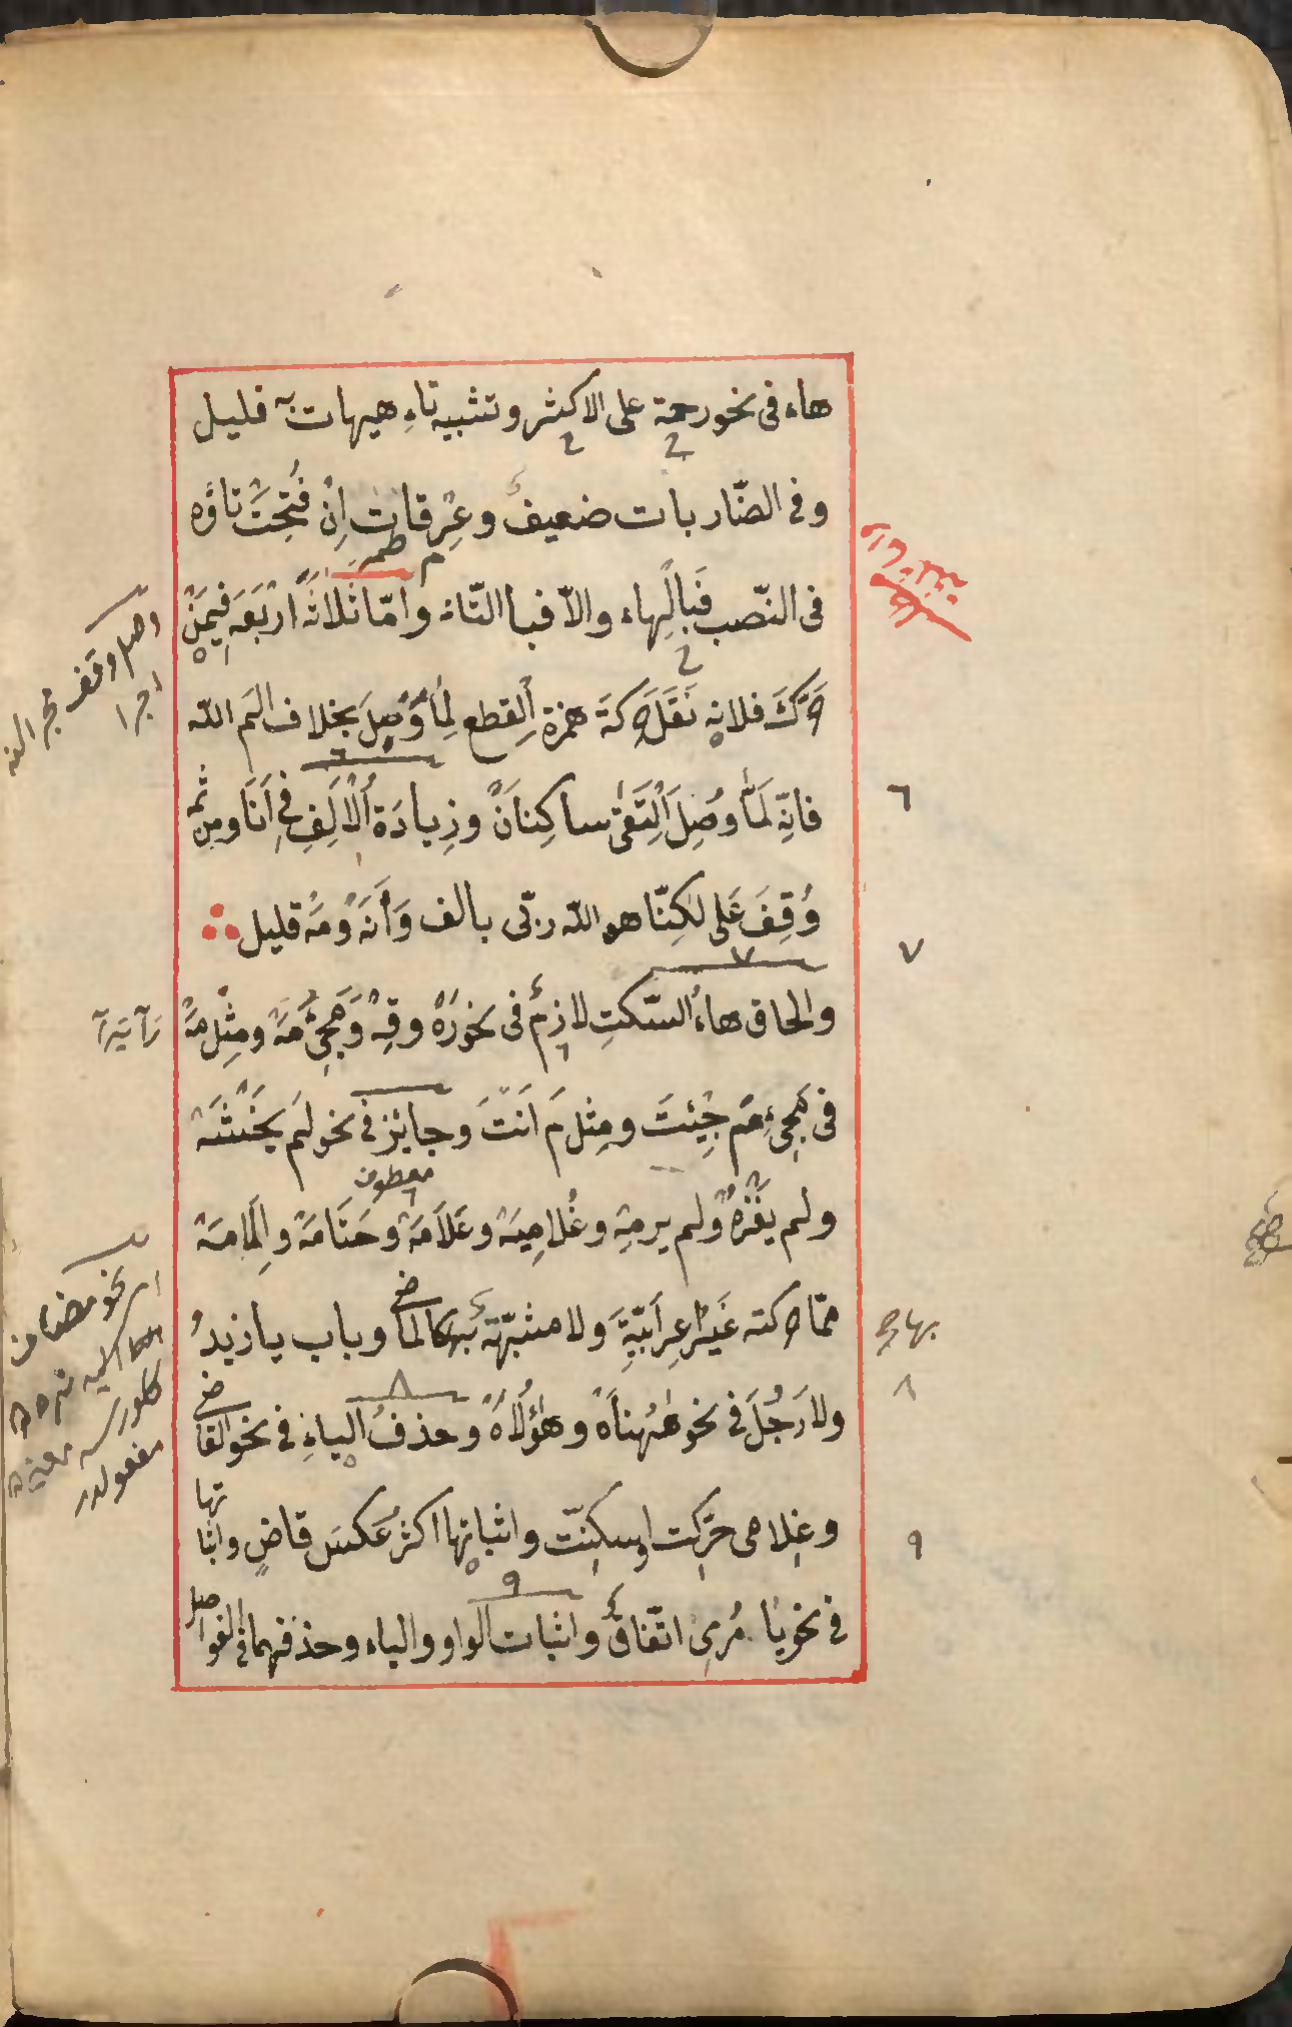 هاء فى نحو رحمة على الاكثر وتشبيه تاءِ هيهات به قليل
وفى الضّاربات ضعيفٌ وعِرقات اِنْ فُتِحَتْ تاؤه
فى النّصب فَبالِهاء والاّ فبا التّاء وامّا ثلاثة اَرْبَعَه فيمَنْ
حَرَّكَ فلانه نَقَلَ حركة همزة اَلقطع لِمَا وُصِلَ بخلاف الَم الله
فانّه لَمَّا وُصِلَ اَلْتَقىٰ ساكِنانْ وزِيادَة اُلْاَلِفِ فى اَنَا ومن ثم
وُقِفَ عَلى لكِنّا هو الله ربّى بالف وَاَنَهْ ومَهْ قليل
والحاق هاءُ السّكتِ لازمٌ فى نحو رَهْ وقِهْ وَمَجِئُ مَهْ ومِثْلُ مَهْ
فى مَجِئِ مَ جِئتَ ومِثل مَ اَنْتَ وجايز فى نحو لَم يَخْشَهْ
ولم يَغْزُهْ ولم يرمِهْ وغُلامِيَهْ وعَلاَمَهْ وحَتَّامَهْ واِلَامَهْ
ممّا حركته غَيْرُ اعِرابيَّةٍ ولا مشبّهة بها كالماضى وباب يا زيدُ
ولا رَجُلَ فى نحو هٰهُناهْ وهٰؤُلاَهْ وحذفُ الياءِ فى نحو القاضى
وغلامى حرّكت او سكنّت واثباتها اكثرُ عَكسَ قاضٍ واثباتها
فى نحو يَا مُرِى اتّفاقٌ واثبات الواو والياء وحذفهما فى الفواصل
معطوف
وصل وقف
اجرا
٦
٧
٨
٩